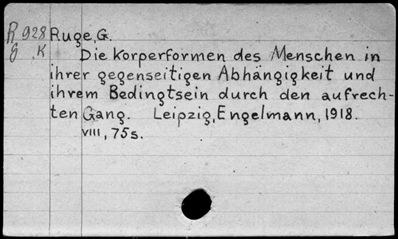 R 928 Ruge, G.
g .K Die Korperformen des Menschen in
ihrer gegenseitigen Abhängigkeit und
ihrem Bedingtsein durch den aufrech-
ten Gang. Leipzig, Engelmann, 1918.
VIII, 75s.